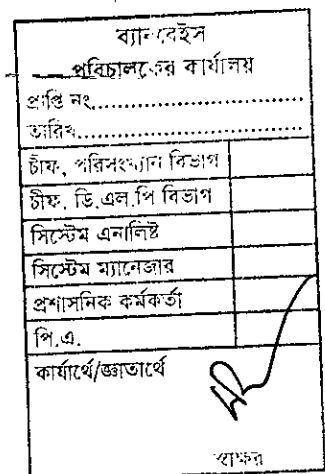 ব্যানবেইস
পরিচালকের কার্যালয়
প্রাপ্তি নং..............................
তারিখ..............................
চীফ, পরিসংখ্যান বিভাগ
চীফ, ডি.এল.পি বিভাগ
সিস্টেম এনালিষ্ট
সিস্টেম ম্যানেজার
প্রশাসনিক কর্মকর্তা
পি.এ.
কার্যার্থে/জ্ঞাতার্থে
স্বাক্ষর